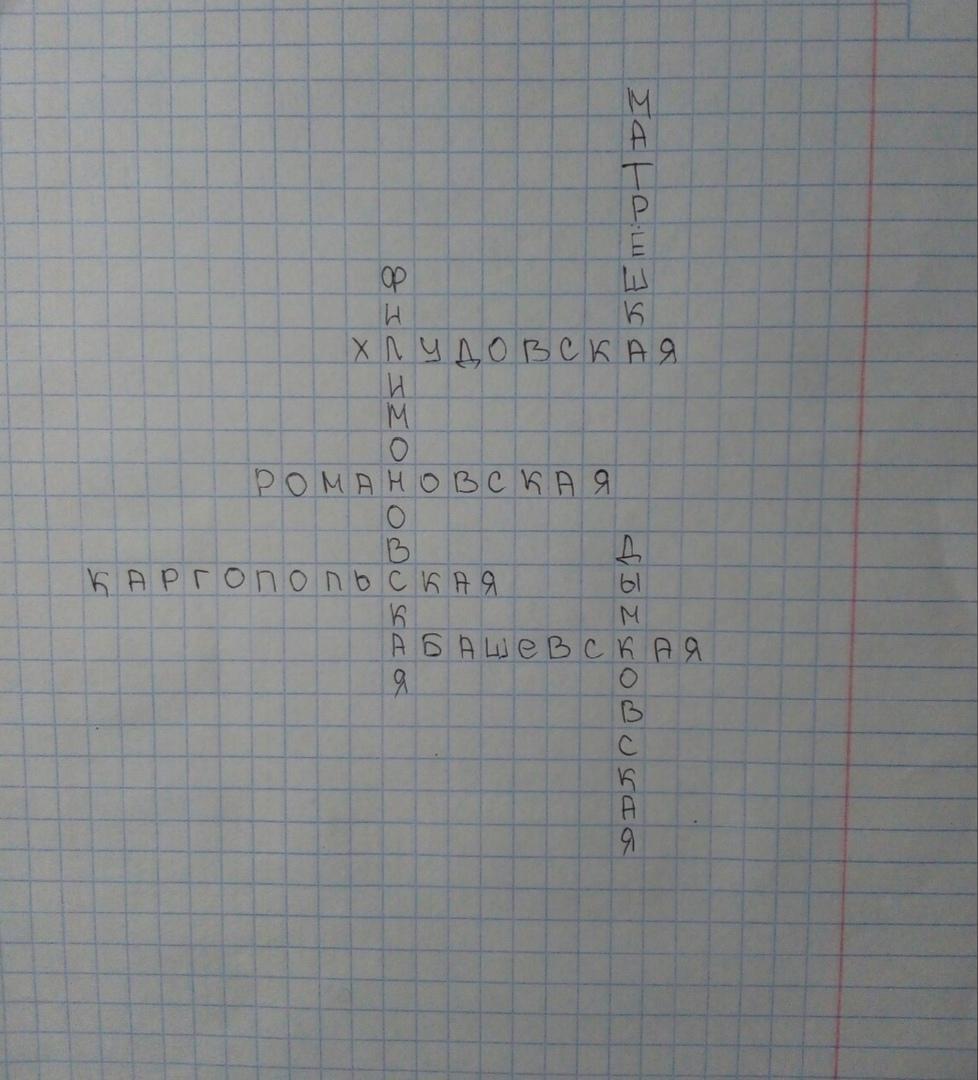 МАТРЁШКА
ФИЛИМОНОВСКАЯ
ХЛУДОВСКАЯ
РОМАНОВСКАЯ
ДЫМКОВСКАЯ
КАРГОПОЛЬСКАЯ
АБАШЕВСКАЯ